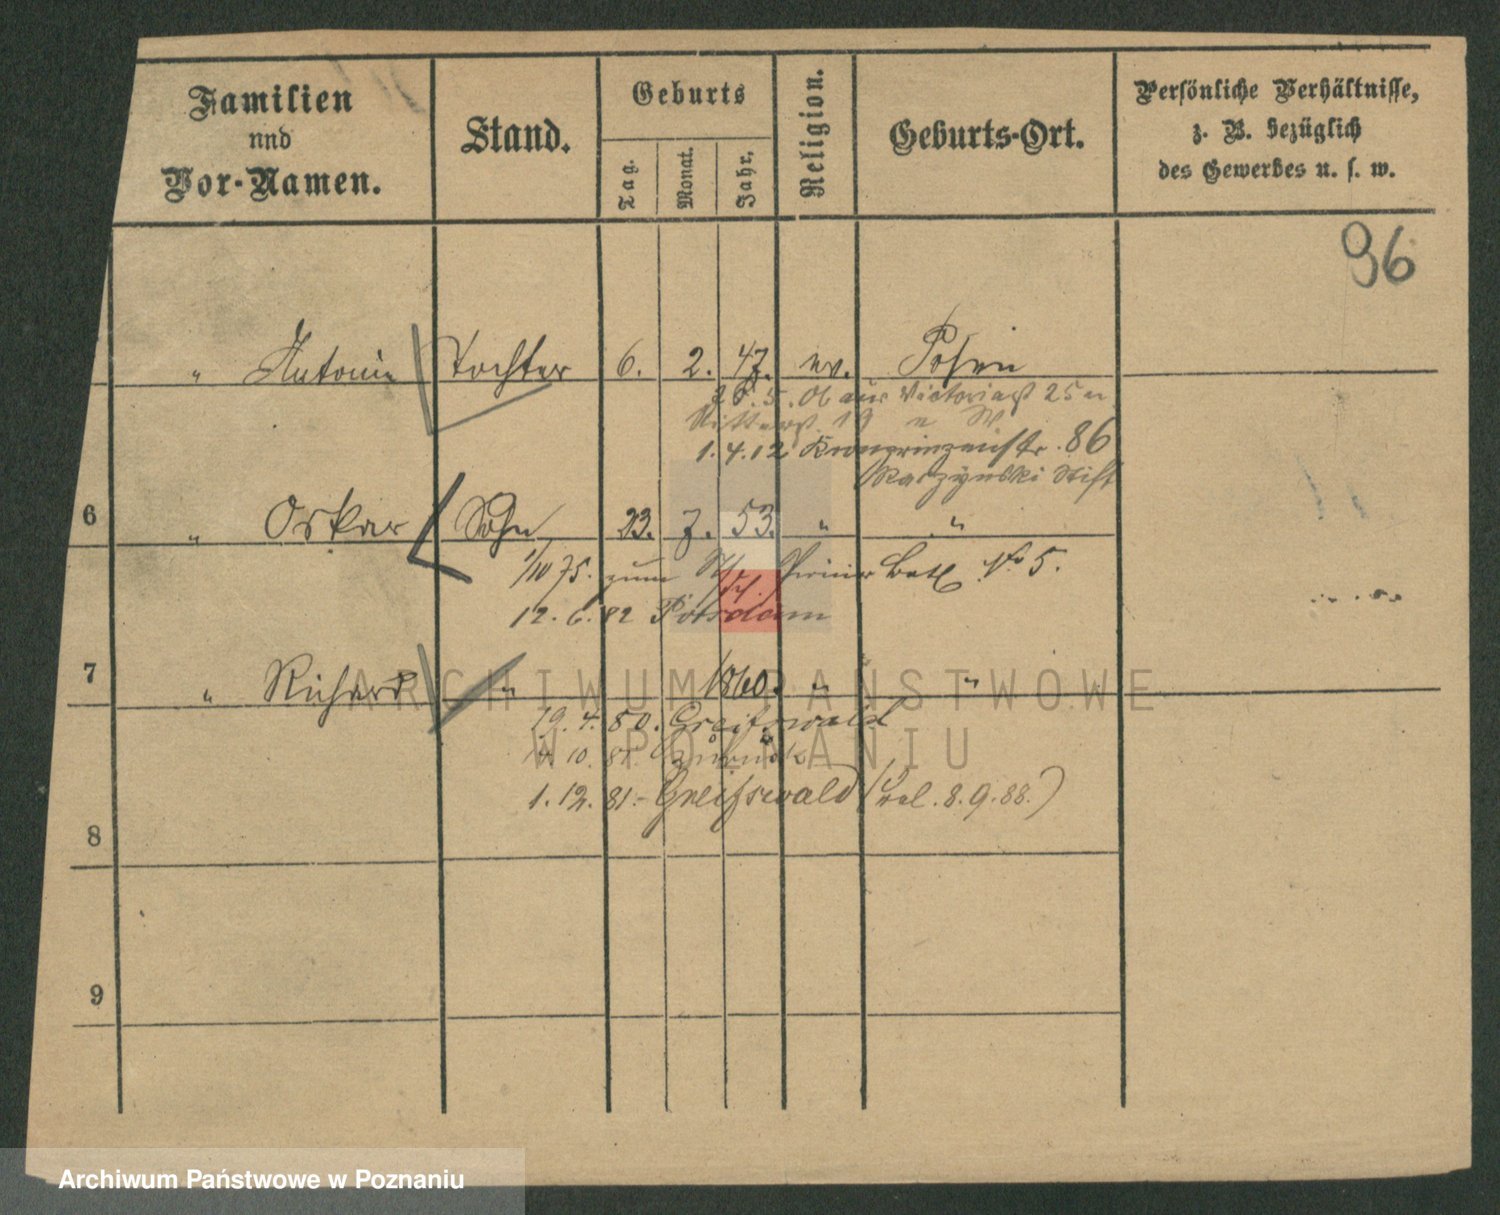 Familien
und
Vor-Namen.
Stand.
Geburts
Tag.
Monat.
Jahr.
Religion.
Geburts-Ort.
Persönliche Verhältnisse,
z. B. bezüglich
des Gewerbes u. s. w.
96
" Antonie Tochter 6. 2. 47. ev. Posen
26.5. Ob aus Victoriast 25 n
Ritterst. 19 n W
1.4.12 Kronprinzenstr. 86
Raczynski Stift
6 " Oskar Sohn 23. 7. 53. " "
1/10 75. zum Pionier Batl No 5.
12. 6. 82 Potsdam
7 " Richard " 1860. " "
19. 4. 80. Greifswald
10. 81 Zurück
1. 12. 81.- Greifswald ( 8.9.88.)
8
9
ARCHIWUM PAŃSTWOWE
W POZNANIU
Archiwum Państwowe w Poznaniu